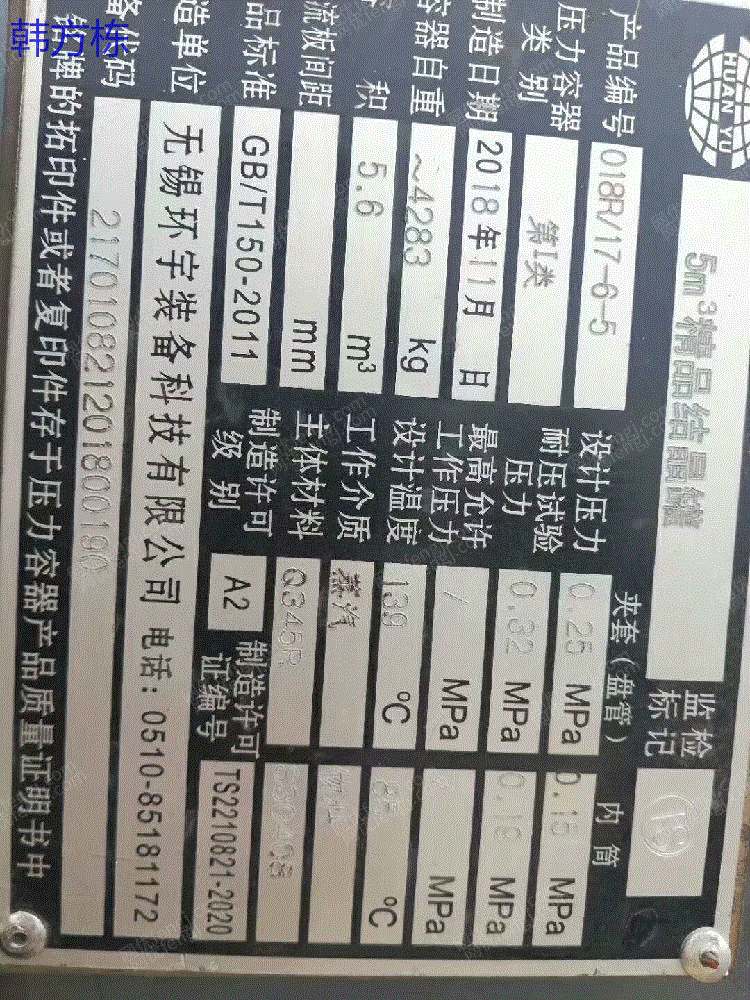 韩方栋
HUAN YU
5m³精品结晶罐
监检标记
产品编号 018R/17-6-5
夹套（盘管）
内筒
压力容器类别 第I类
设计压力 0.25 MPa 0.15 MPa
制造日期 2018年11月 日
耐压试验压力 0.32 MPa 0.19 MPa
容器自重 ~4283 kg
最高允许工作压力 / MPa MPa
积 5.6 m³
设计温度 139 ℃ 85 ℃
流板间距 mm
工作介质 蒸汽
品标准 GB/T150-2011
主体材料 Q345R S30408
制造许可级别 A2
制造许可证编号 TS2210821-2020
造单位 无锡环宇装备科技有限公司 电话：0510-85181172
备代码 217010821201800190
铭牌的拓印件或者复印件存于压力容器产品质量证明书中